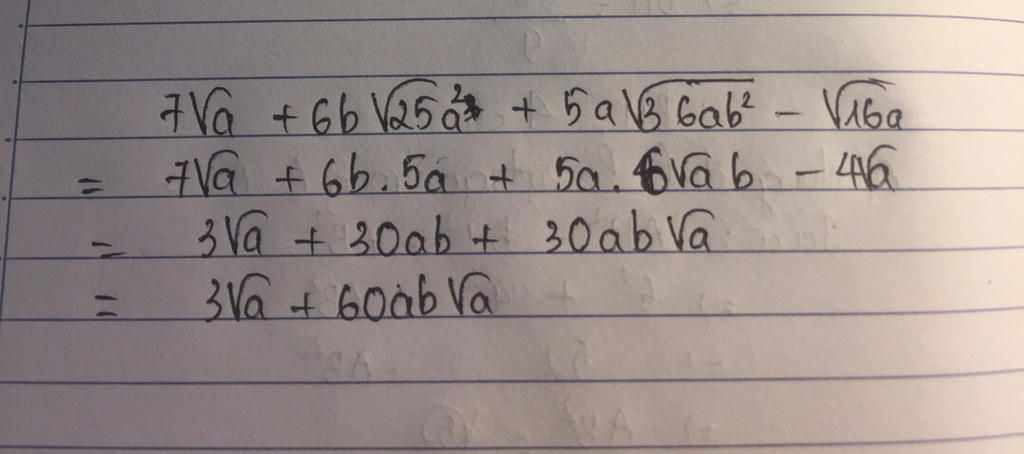 7√a + 6b√25a² + 5a√36ab² - √16a
= 7√a + 6b.5a + 5a.6√a b - 4√a
= 3√a + 30ab + 30ab√a
= 3√a + 60ab√a